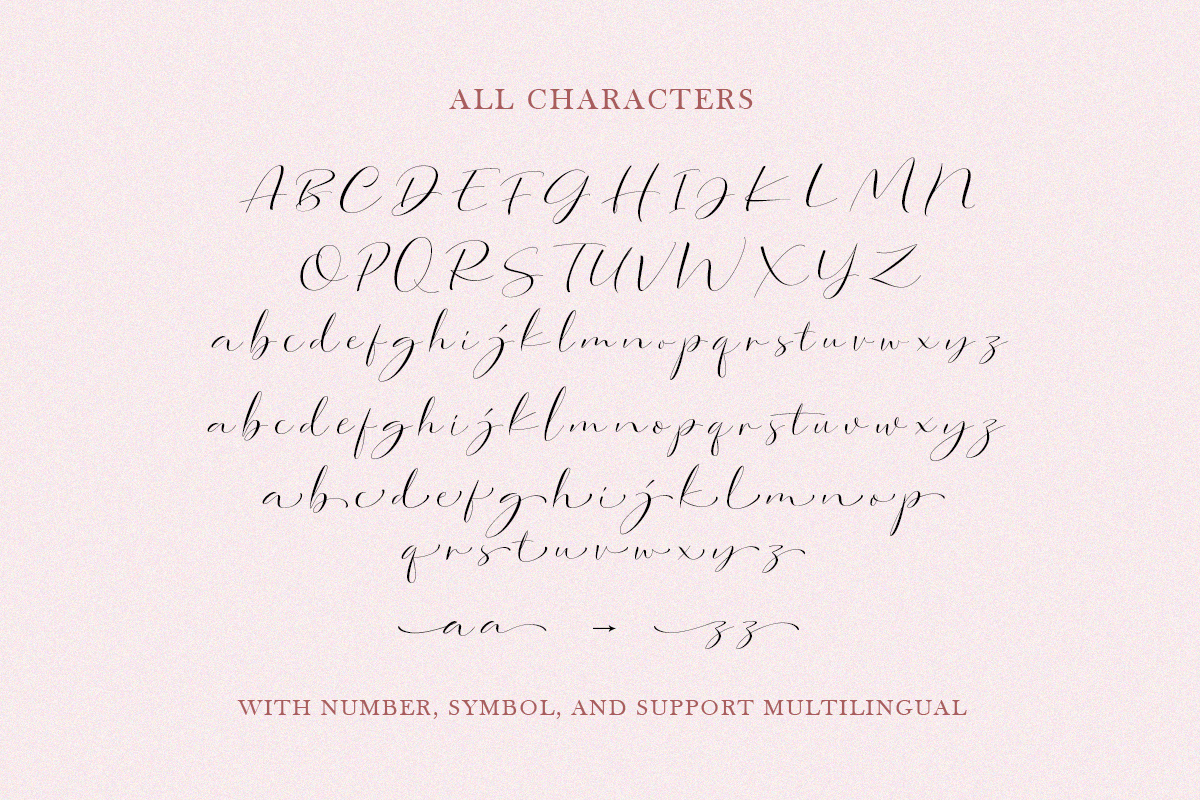 ALL CHARACTERS
A B C D E F G H I J K L M N
O P Q R S T U V W X Y Z
a b c d e f g h i j k l m n o p q r s t u v w x y z
a b c d e f g h i j k l m n o p q r s t u v w x y z
a b c d e f g h i j k l m n o p
q r s t u v w x y z
a a → z z
WITH NUMBER, SYMBOL, AND SUPPORT MULTILINGUAL